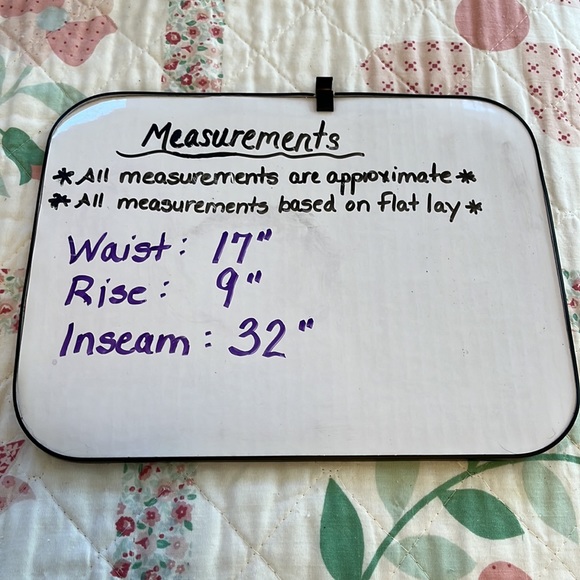 Measurements
*All measurements are approximate*
*All measurements based on flat lay*
Waist: 17"
Rise: 9"
Inseam: 32"